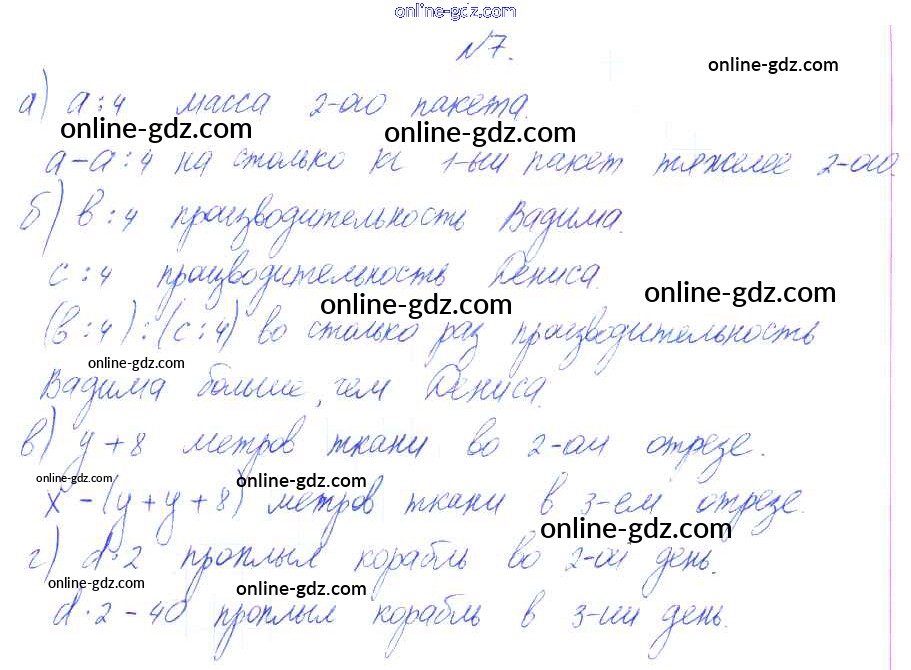 online-gdz.com
N7.
online-gdz.com
а) а:4 масса 2-ого пакета.
online-gdz.com online-gdz.com
а-а:4 на столько кг 1-ый пакет тяжелее 2-ого.
б) в:4 производительность Вадима.
с:4 производительность Дениса.
online-gdz.com online-gdz.com
(в:4):(с:4) во столько раз производительность
online-gdz.com
Вадима больше, чем Дениса.
в) у+8 метров ткани во 2-ом отрезе.
online-gdz.com online-gdz.com
х-(у+у+8) метров ткани в 3-ем отрезе.
online-gdz.com
г) d·2 проплыл корабль во 2-ой день.
online-gdz.com online-gdz.com
d·2-40 проплыл корабль в 3-ий день.